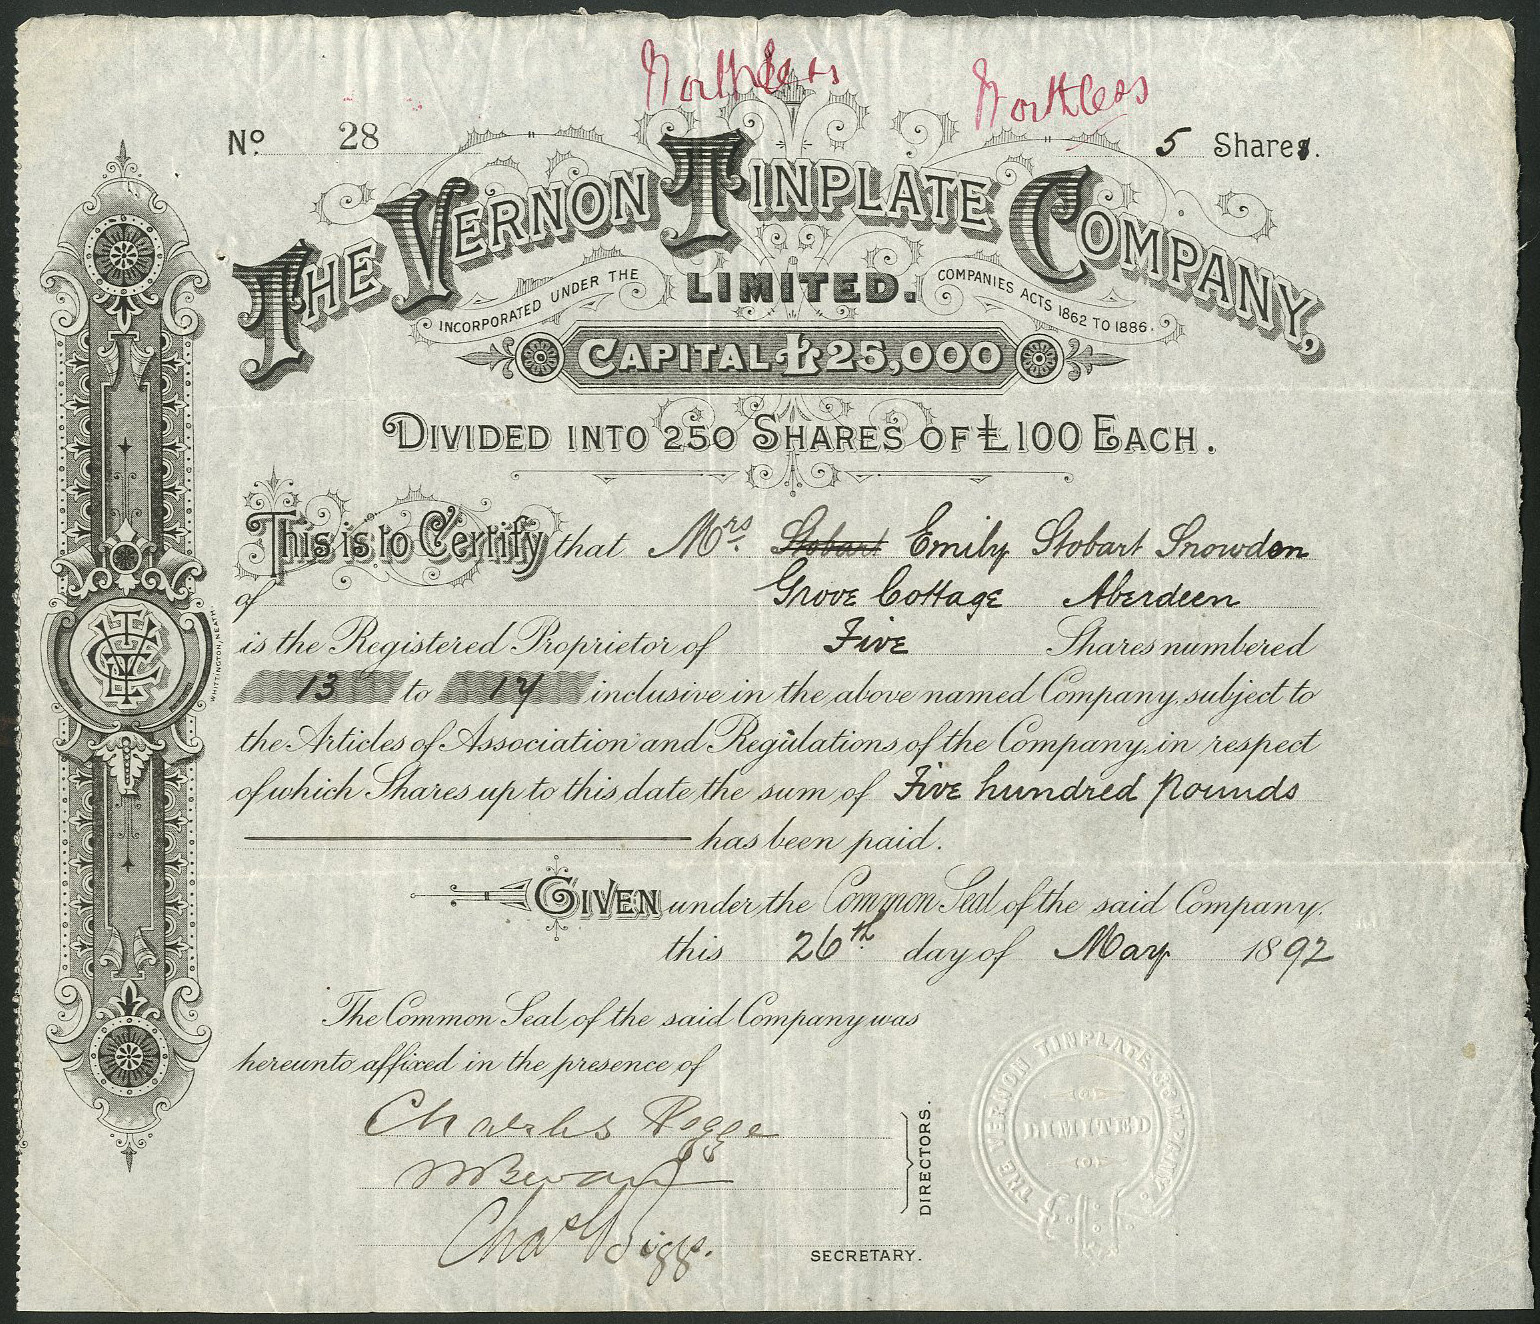 Worthless Worthless
No. 28 5 Shares.
THE VERNON TINPLATE COMPANY,
LIMITED.
INCORPORATED UNDER THE COMPANIES ACTS 1862 TO 1886.
CAPITAL £25,000
DIVIDED INTO 250 SHARES OF £100 EACH.
This is to Certify that Mrs. Stobart Emily Stobart Snowden
of Grove Cottage Aberdeen
is the Registered Proprietor of Five Shares numbered
13 to 17 inclusive in the above named Company, subject to
the Articles of Association and Regulations of the Company, in respect
of which Shares up to this date the sum of Five hundred pounds
has been paid.
GIVEN under the Common Seal of the said Company.
this 26th day of May 1892
The Common Seal of the said Company was
hereunto affixed in the presence of
Charles
DIRECTORS.
SECRETARY.
WHITTINGTON, NEATH.
THE VERNON TINPLATE COMPANY
LIMITED